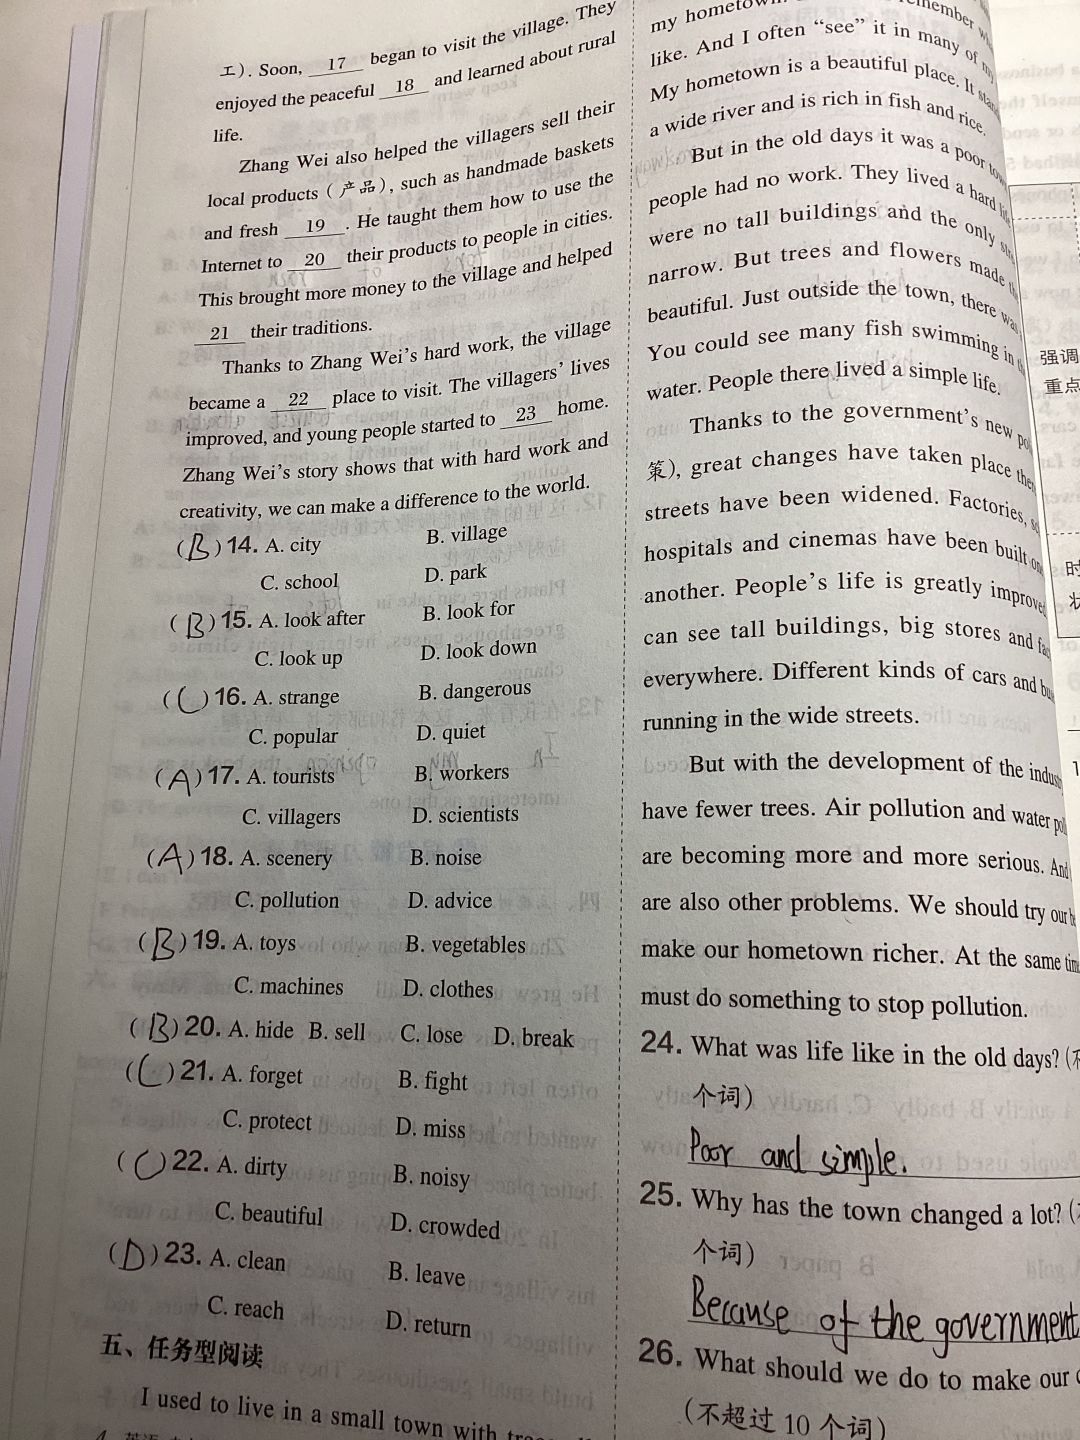 工). Soon, 17 began to visit the village. They
enjoyed the peaceful 18 and learned about rural
life.
Zhang Wei also helped the villagers sell their
local products (产品), such as handmade baskets
and fresh 19. He taught them how to use the
Internet to 20 their products to people in cities.
This brought more money to the village and helped
21 their traditions.
Thanks to Zhang Wei's hard work, the village
became a 22 place to visit. The villagers' lives
improved, and young people started to 23 home.
Zhang Wei's story shows that with hard work and
creativity, we can make a difference to the world.
(B)14. A. city B. village
C. school D. park
(B)15. A. look after B. look for
C. look up D. look down
(C)16. A. strange B. dangerous
C. popular D. quiet
(A)17. A. tourists B. workers
C. villagers D. scientists
(A)18. A. scenery B. noise
C. pollution D. advice
(B)19. A. toys B. vegetables
C. machines D. clothes
(B)20. A. hide B. sell C. lose D. break
(C)21. A. forget B. fight
C. protect D. miss
(C)22. A. dirty B. noisy
C. beautiful D. crowded
(D)23. A. clean B. leave
C. reach D. return
五、任务型阅读
I used to live in a small town with
my
like. And I often "see" it in many of
My hometown is a beautiful place. It
a wide river and is rich in fish and rice.
But in the old days it was a poor
people had no work. They lived a hard
were no tall buildings and the only
narrow. But trees and flowers made
beautiful. Just outside the town, there
You could see many fish swimming in
water. People there lived a simple life.
Thanks to the government's new
策), great changes have taken place
streets have been widened. Factories,
hospitals and cinemas have been built
another. People's life is greatly
can see tall buildings, big stores and
everywhere. Different kinds of cars and
running in the wide streets.
But with the development of the
have fewer trees. Air pollution and water
are becoming more and more serious. And
are also other problems. We should try our
make our hometown richer. At the same
must do something to stop pollution.
24. What was life like in the old days? (
个词)
Poor and simple.
25. Why has the town changed a lot? (
个词)
Because of the government
26. What should we do to make our
(不超过 10 个词)
强调
重点
时